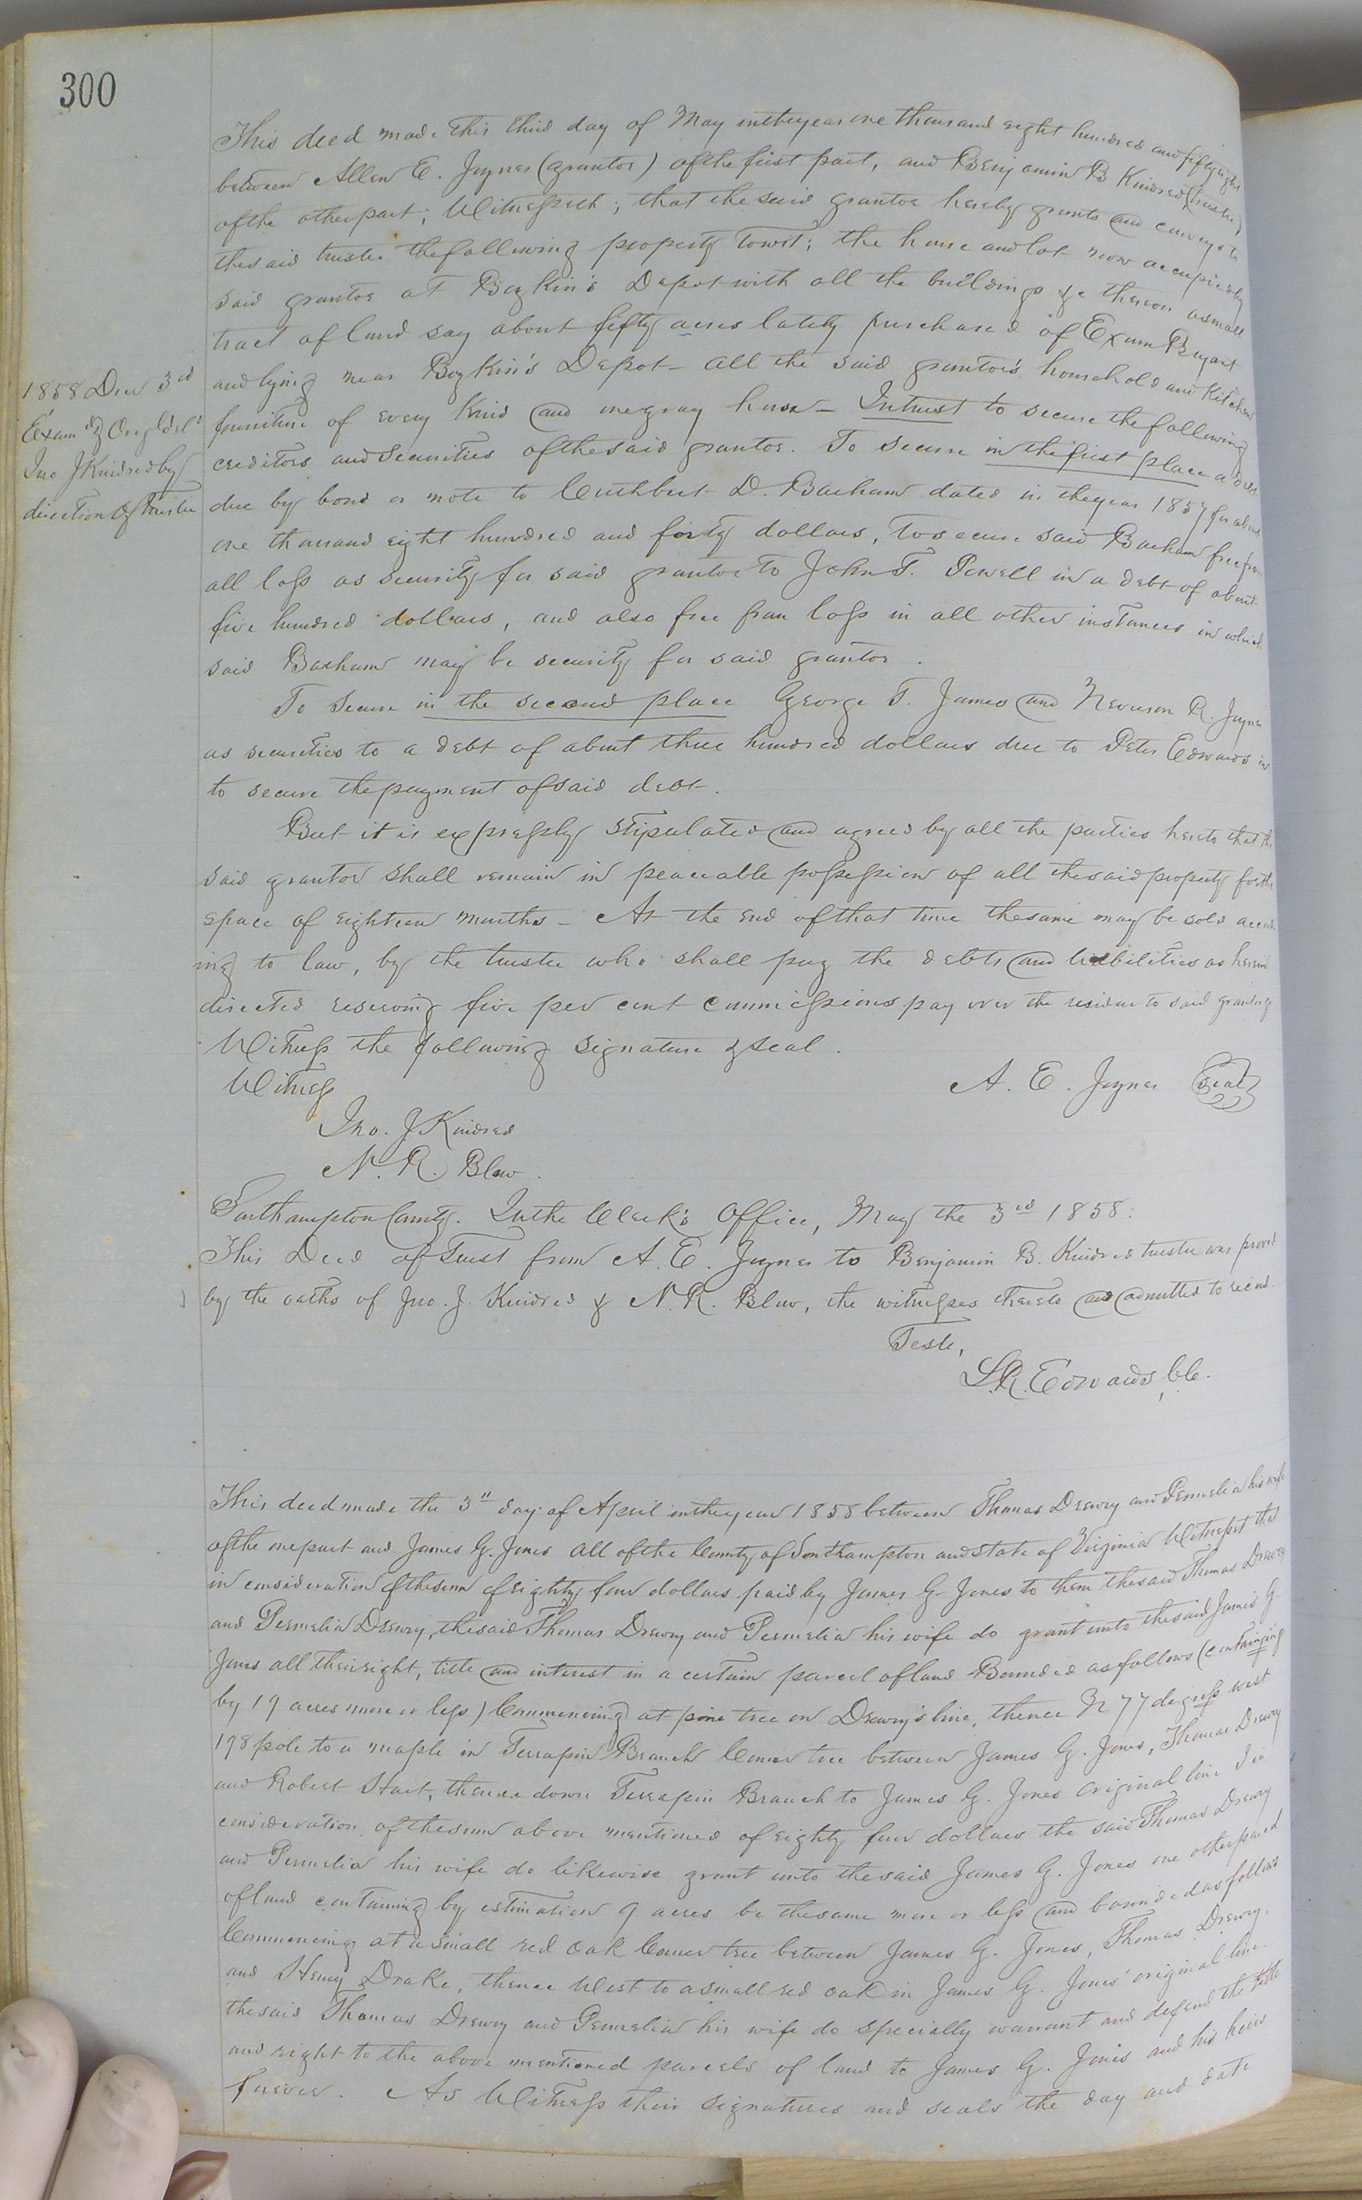 300
This deed made this third day of May in the year one thousand eight hundred and fifty eight
between Allen E. Joyner (grantor) of the first part, and Benjamin B Kindred (trustee)
of the other part; Witnesseth; that the said grantor hereby grants and conveys to
the said trustee the following property towit; the house and lot now occupied by
said grantor at Boykin's Depot with all the buildings &c thereon a small
tract of land say about fifty acres lately purchased of Exum Bryant
and lying near Boykin's Depot - all the said grantor's household and kitchen
furniture of every kind and one gray horse - In trust to secure the following
creditors and securities of the said grantor. To secure in the first place a debt
due by bond or note to Cuthbert D. Barham dated in the year 1857 for about
one thousand eight hundred and forty dollars, to secure said Barham free from
all loss as security for said grantor to John T. Powell in a debt of about
five hundred dollars, and also free from loss in all other instances in which
said Barham may be security for said grantor.
To secure in the second place George T. James and Newsom R. Joyner
as securities to a debt of about three hundred dollars due to Peter Edwards
to secure the payment of said debt.
But it is expressly stipulated and agreed by all the parties hereto that the
said grantor shall remain in peaceable possession of all the said property for the
space of eighteen months - At the end of that time the same may be sold accord
ing to law, by the trustee who shall pay the debts and liabilities as herein
directed reserving five per cent commissions pay over the residue to said grantor
Witness the following signature & seal.
Witness
A. E. Joyner (Seal)
Jno. J Kindred
N. R. Blow
Southampton County. In the Clerk's Office, May the 3rd 1858:
This Deed of Trust from A. E. Joyner to Benjamin B. Kindred trustee was proved
by the oaths of Jno. J. Kindred & N. R. Blow, the witnesses thereto and admitted to record.
Teste,
L.R. Edwards, Clk.
1858 Decr 3rd
Examd & Origl deld
Jno J Kindred by
direction of trustee
This deed made the 3" day of April in the year 1858 between Thomas Drewry and Permelia his wife
of the one part and James G. Jones all of the County of Southampton and State of Virginia Witnesst that
in consideration of the sum of eighty four dollars paid by James G. Jones to them the said Thomas Drewry
and Permelia Drewry, the said Thomas Drewry and Permelia his wife do grant unto the said James G.
Jones all their right, title and interest in a certain parcel of land Bounded as follows (containing
by 19 acres more or less) Commencing at pine tree on Drewry's line, thence N 77 degress west
198 pole to a maple in Terrapin Branch Corner tree between James G. Jones, Thomas Drewry
and Robert Hart, thence down Terrapin Branch to James G. Jones original line & in
consideration of the sum above mentioned of eighty four dollars the said Thomas Drewry
and Permelia his wife do likewise grant unto the said James G. Jones one other parcel
of land containing by estimation 9 acres be the same more or less and bounded as follows
Commencing at a small red oak Corner tree between James G. Jones, Thomas Drewry,
and Henry Drake, thence West to a small red oak in James G. Jones' original line.
the said Thomas Drewry and Permelia his wife do specially warrant and defend the title
and right to the above mentioned parcels of land to James G. Jones and his heirs
forever. As Witness their signatures and seals the day and date